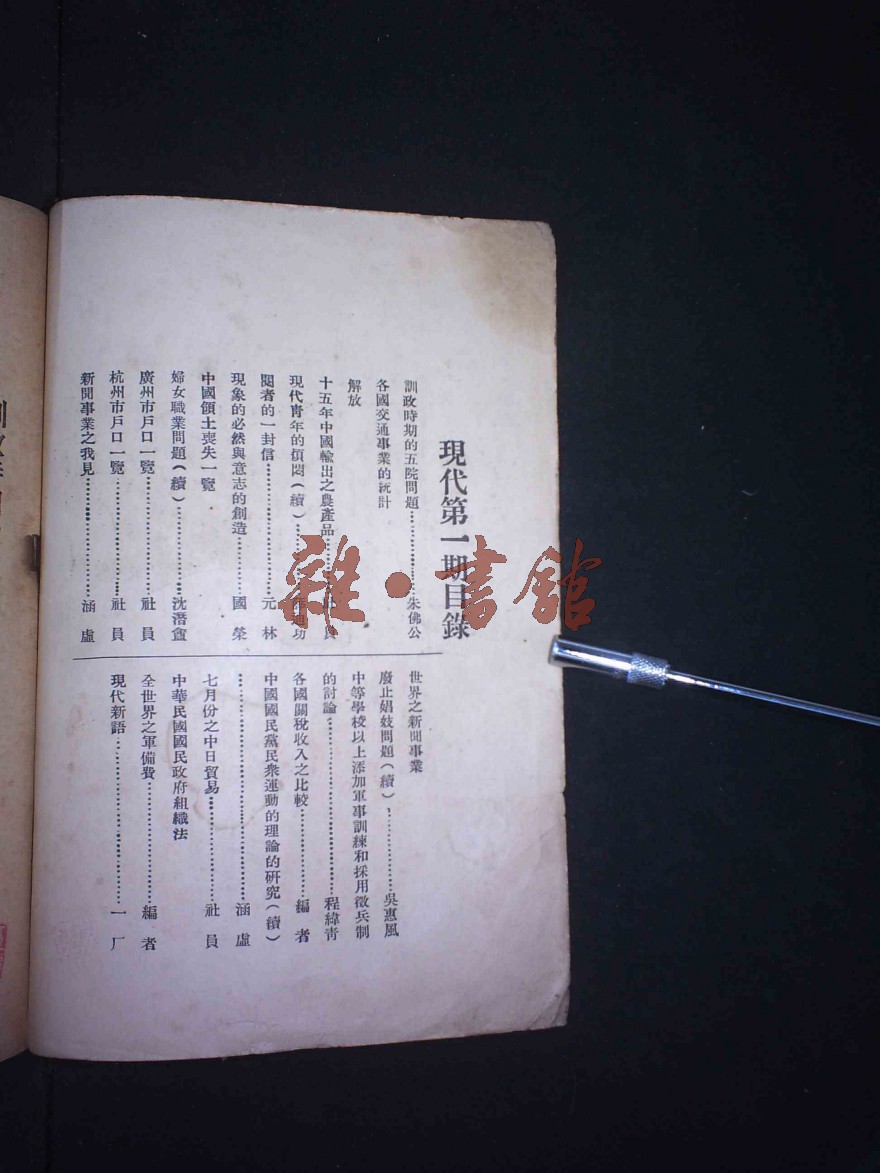 現代第一期目錄
訓政時期的五院問題……………朱佛公
各國交通事業的統計
解放
十五年中國輸出之農產品……………員
現代青年的煩悶(續)……………功
閱者的一封信……………元林
現象的必然與意志的創造……………國榮
中國領土喪失一覽
婦女職業問題(續)……………沈潛盦
廣州市戶口一覽……………社員
杭州市戶口一覽……………社員
新聞事業之我見……………涵虛
世界之新聞事業
廢止娼妓問題(續)……………吳惠風
中等學校以上添加軍事訓練和採用徵兵制
的討論……………程緯青
各國關稅收入之比較……………編者
中國國民黨民衆運動的理論的研究(續)
……………涵虛
七月份之中日貿易……………社員
中華民國國民政府組織法
全世界之軍備費……………編者
現代新語……………一厂
雜·書館